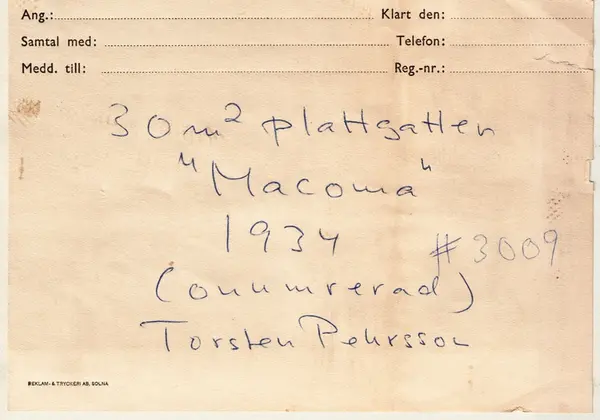 Ang.: Klart den:
Samtal med: Telefon:
Medd. till: Reg.-nr.:
30m² plattgatter
"Macoma"
1934 #3009
(onumrerad)
Torsten Pehrsson
REKLAM- & TRYCKERI AB, SOLNA